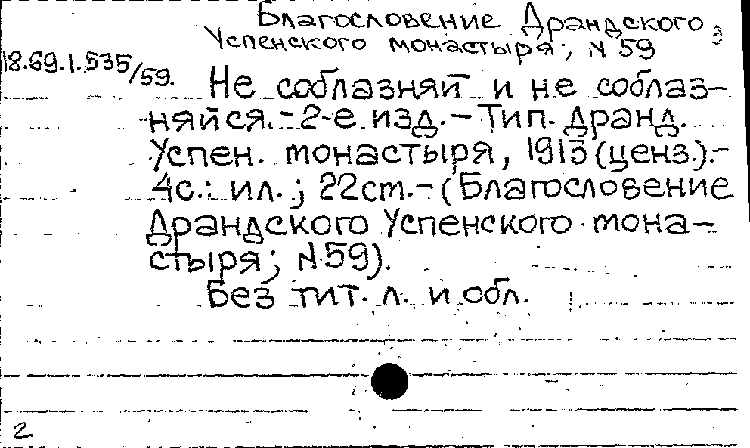 Благословение Драндского
Успенского монастыря; N 59
18.69.1.535/59.
Не соблазняй и не соблаз-
няйся. - 2-е изд. - Тип. Дранд.
Успен. монастыря, 1913 (ценз.). -
4с.: ил.; 22cm. - (Благословение
Драндского Успенского мона-
стыря; N 59).
Без тит. л. и обл.
2